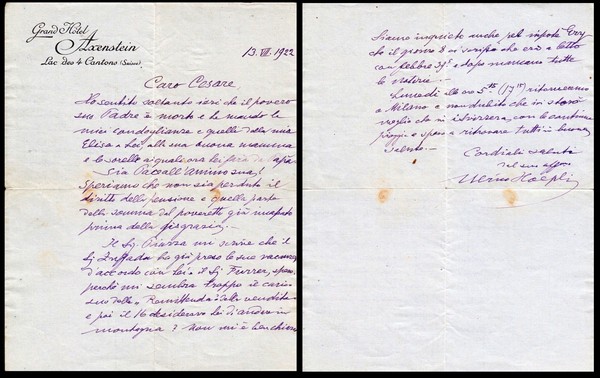 Grand Hôtel
Axenstein
Lac des 4 Cantons (Suisse)
13. VIII. 1922
Caro Cesare,
Ho sentito soltanto ieri che il povero
suo Padre è morto e Le mando le
mie condoglianze e quelle della mia
Elisa a Lei, alla sua buona mamma
e la sorella ai quali ora Lei farà da Papà.
Sia Pace all'anima sua!
Speriamo che non sia perduto il
diritto della pensione e quella parte
della somma del poveretto già
prima della disgrazia.
Il Sig. Piazza mi scrive che il
Sig. ha già preso le sue vacanze
d'accordo con Lei e il Sig. Furrer,
perchè mi sembra troppo il
suo della Remittenda e della vendita
e poi il 16 desiderava Lei d'andare in
montagna? Non mi è ben chiaro
Siamo inquieti anche pel nipote Erry
che il giorno 8 ci che era a letto
con febbre 39° e dopo mancano tutte
le notizie.
Lunedì alle ore 5 ritorneremo
a Milano e non dubito che io starò
meglio che in Svizzera, con le continue
pioggie e spero a ritrovar tutti in buona
salute.
Cordiali saluti
dal suo aff
Ulrico Hoepli